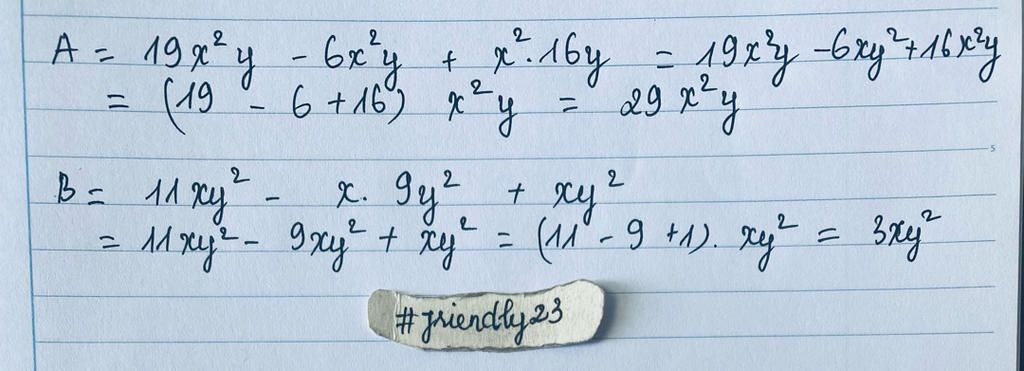 A = 19x²y - 6x²y + x².16y = 19x²y - 6xy² + 16x²y
= (19 - 6 + 16) x²y = 29x²y
B = 11xy² - x.9y² + xy²
= 11xy² - 9xy² + xy² = (11 - 9 + 1). xy² = 3xy²
#friendly23